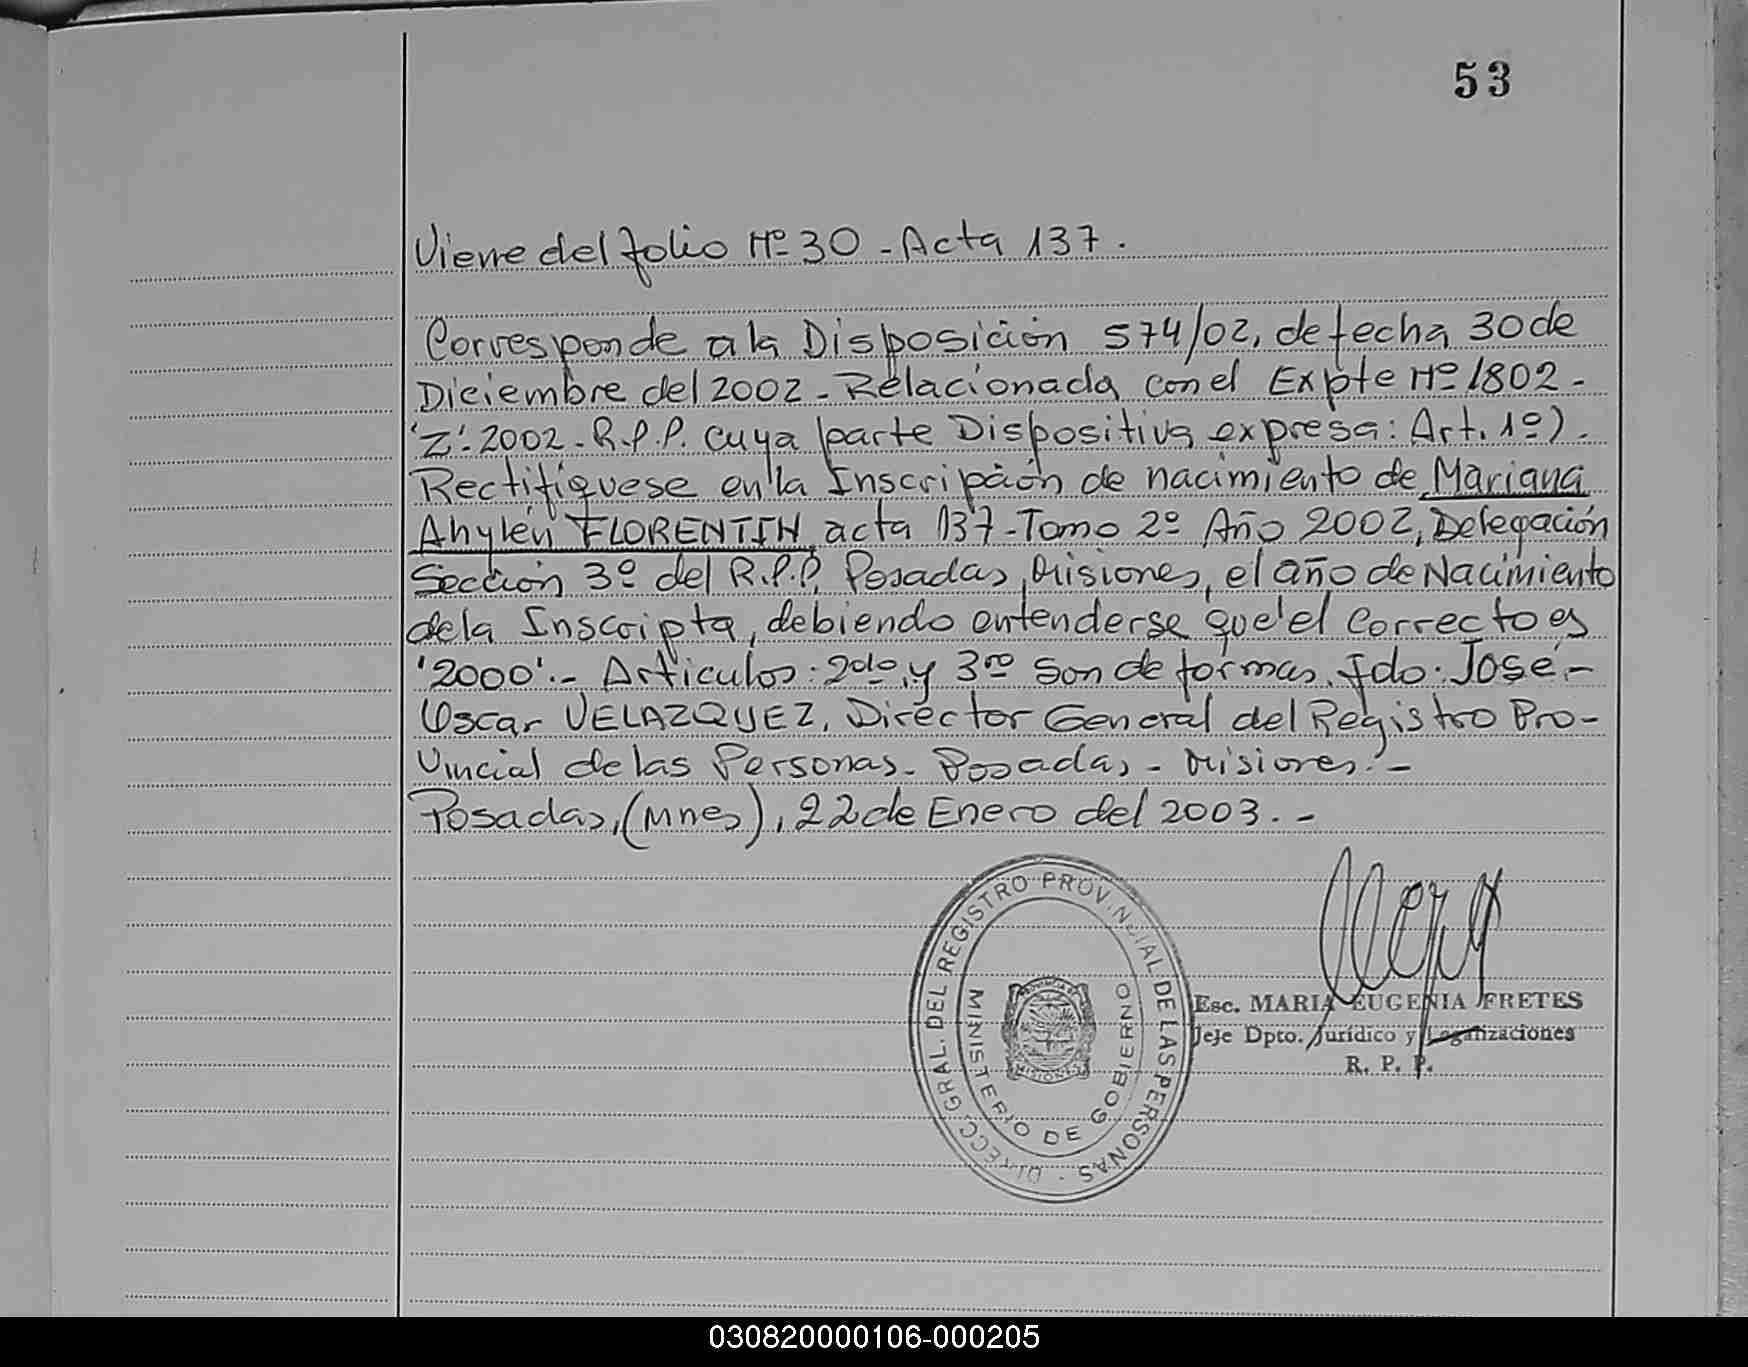 53
Viene del folio Nº 30 - Acta 137.
Corresponde a la Disposición 574/02, de fecha 30 de
Diciembre del 2002 - Relacionada con el Expte Nº 1802 -
'Z'. 2002 - R.P.P. cuya parte Dispositiva expresa: Art. 1º) -
Rectifíquese en la Inscripción de nacimiento de Mariana
Ahylén FLORENTIN, acta 137 - Tomo 2º Año 2002, Delegación
Sección 3º del R.P.P. Posadas, Misiones, el año de Nacimiento
de la Inscripta, debiendo entenderse que el correcto es
'2000'.- Artículos: 2do, y 3ro son de formas. Fdo: José -
Oscar VELAZQUEZ, Director General del Registro Pro-
vincial de las Personas - Posadas - Misiones.-
Posadas, (Mnes), 22 de Enero del 2003. -
DIRECC. GRAL. DEL REGISTRO PROVINCIAL DE LAS PERSONAS -
MINISTERIO DE GOBIERNO
MISIONES
Esc. MARIA EUGENIA FRETES
Jefe Dpto. Jurídico y Legalizaciones
R. P. P.
030820000106-000205